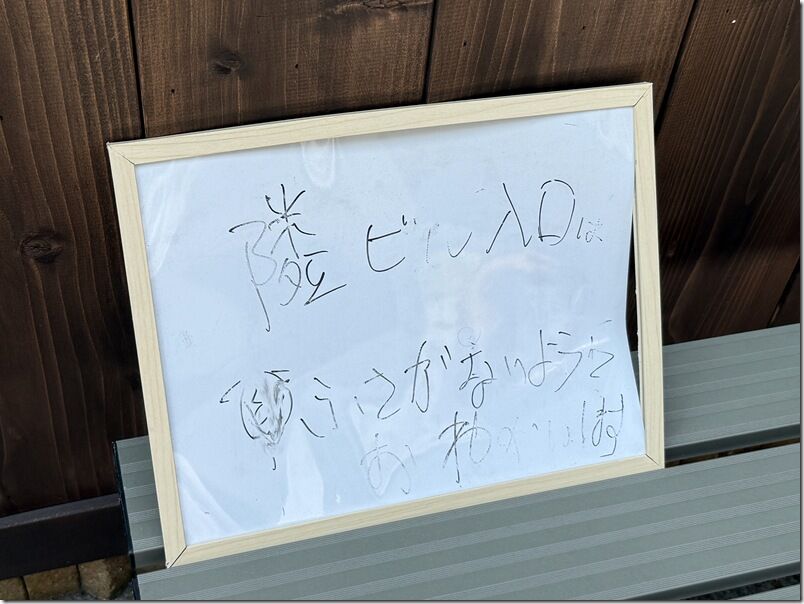 隣ビル入口は
ふさがないように
おねがいします